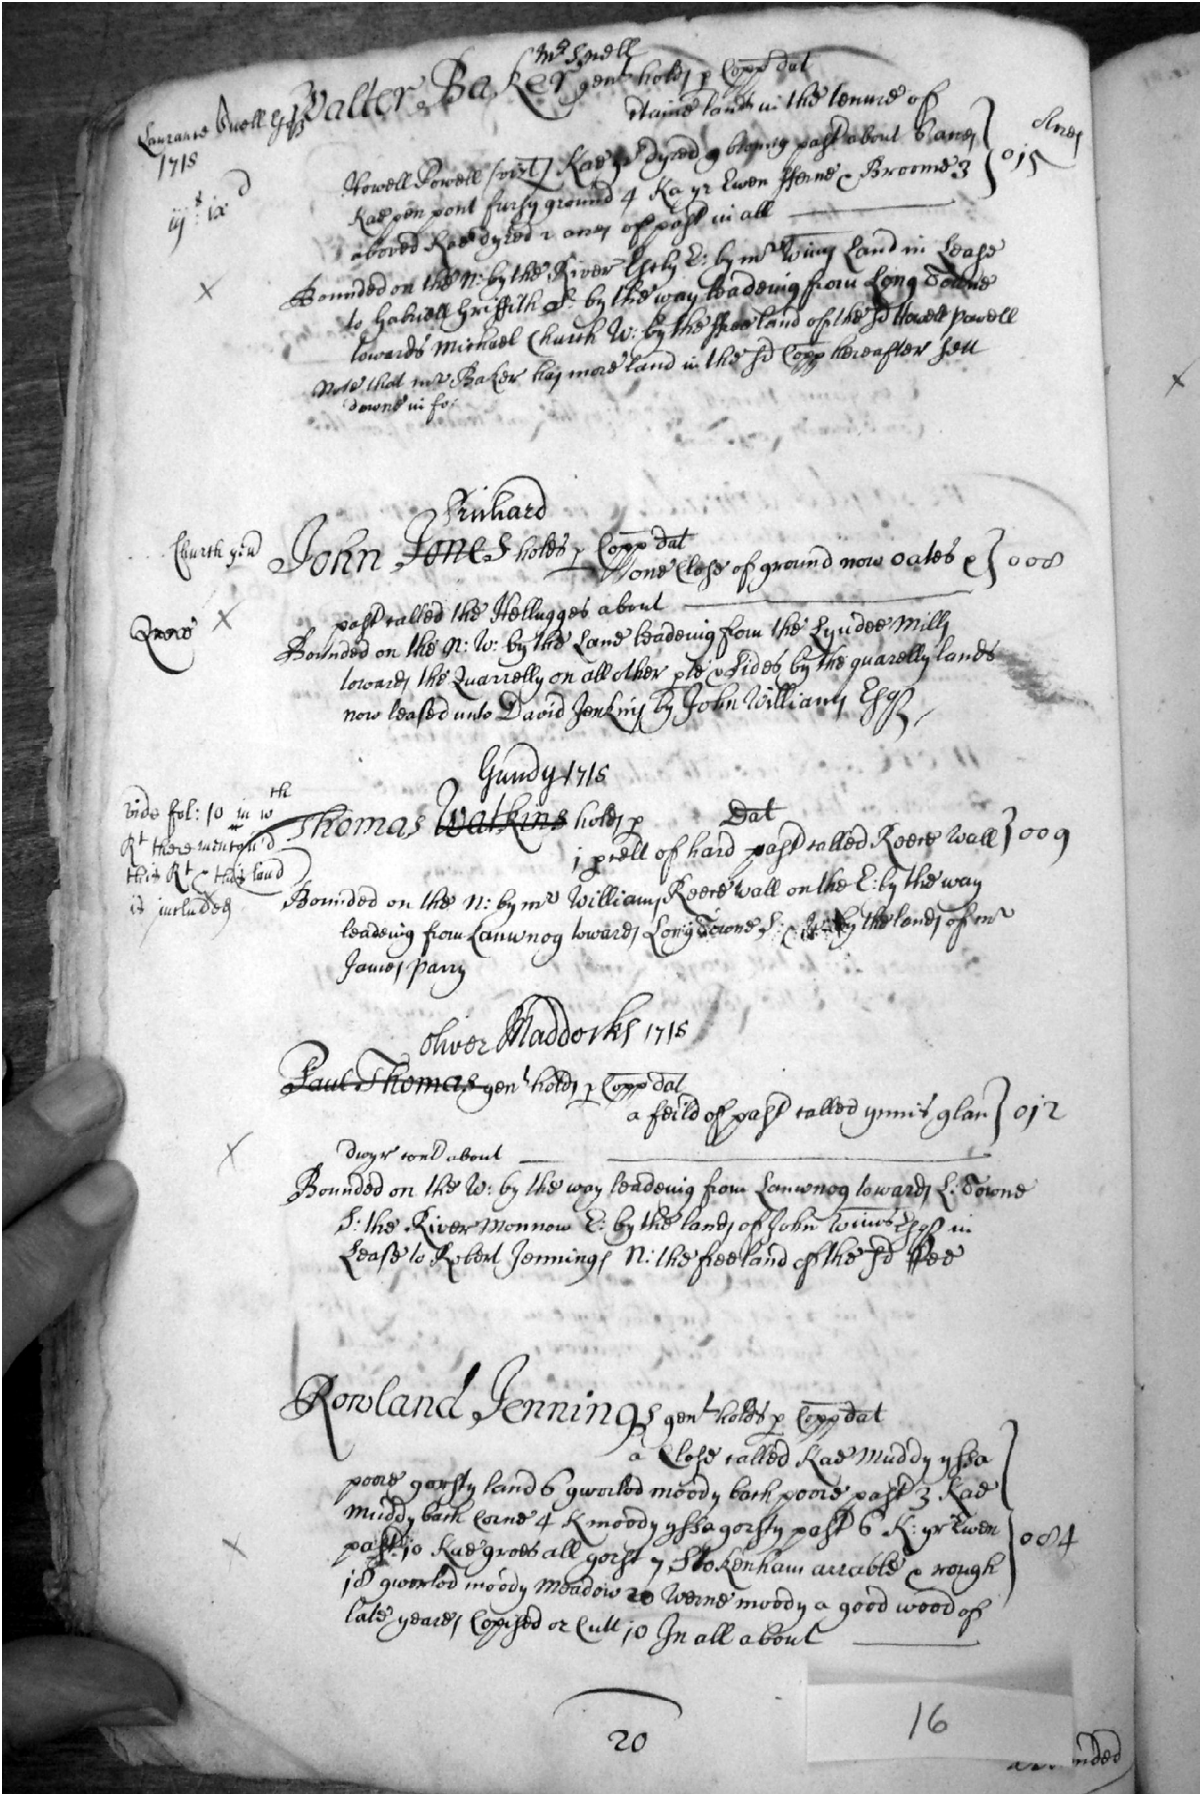 Mr Snell
Laurance Snell Esqr
1715
iijs ixd
Walter Baker gent holds p Copp dat
staine lands in the tenure of
Howell Powell (vizt) Kae yr dyred g past about 6 acres
Kae pen pont fursy ground 4 Ka yr Ewen fferne & Broome 3
aboved Kae dyred 2 acres of past in all
Acres
015
Bounded on the N: by the River Eskly E: by mr Wms Land in Lease
to Gabriell Griffith S: by the way leadeing from Long Towne
towards Michael Church W: by the free land of the sd Howell Powell
Note that mr Baker has more land in the sd Copp hereafter sett
downe in fo:
Prichard
Church yard
John Jones holds p Copp dat
one Close of ground now oates & } 008
past called the Hellugges about
Bounded on the N: W: by the Lane leadeing from the Lyndee Mills
towards the Quarrelly on all other pte & sides by the quarelly lands
now leased unto David Jenkins by John Williams Esqr
Gundy 1715
vide fol: 10 in wth
Rt there mention'd
this Rt & this land
is included
Thomas Watkins holds p Dat
j prcell of hard past called Keere Wall } 009
Bounded on the N: by mr Williams Keere Wall on the E: by the way
leadeing from Lanwnog towards Long Towne S: & W: by the lands of mr
James Parry
Oliver Maddocks 1715
Paul Thomas gent holds p Copp dat
a feild of past called ynnis glan } 012
dwyr cont about
Bounded on the W: by the way leadeing from Lanwnog towards L: Towne
S: the River Monnow E: by the lands of John Wms Esqr in
Lease to Robert Jennings N: the free land of the sd ffee
Rowland Jennings gent holds p Copp dat
a Close called Kae Muddy yssa
poore gorsty land 6 gworlod moody bach poore past 3 Kae
Muddy bach Corne 4 K moody yssa gorsty past 6 K: yr Ewen
past 10 Kae groes all gorst 7 Stokenham arrable & rough
18 gworlod moody meadow 20 Werne moody a good wood of
late yeares Coppised or Cutt 10 In all about
084
20
16